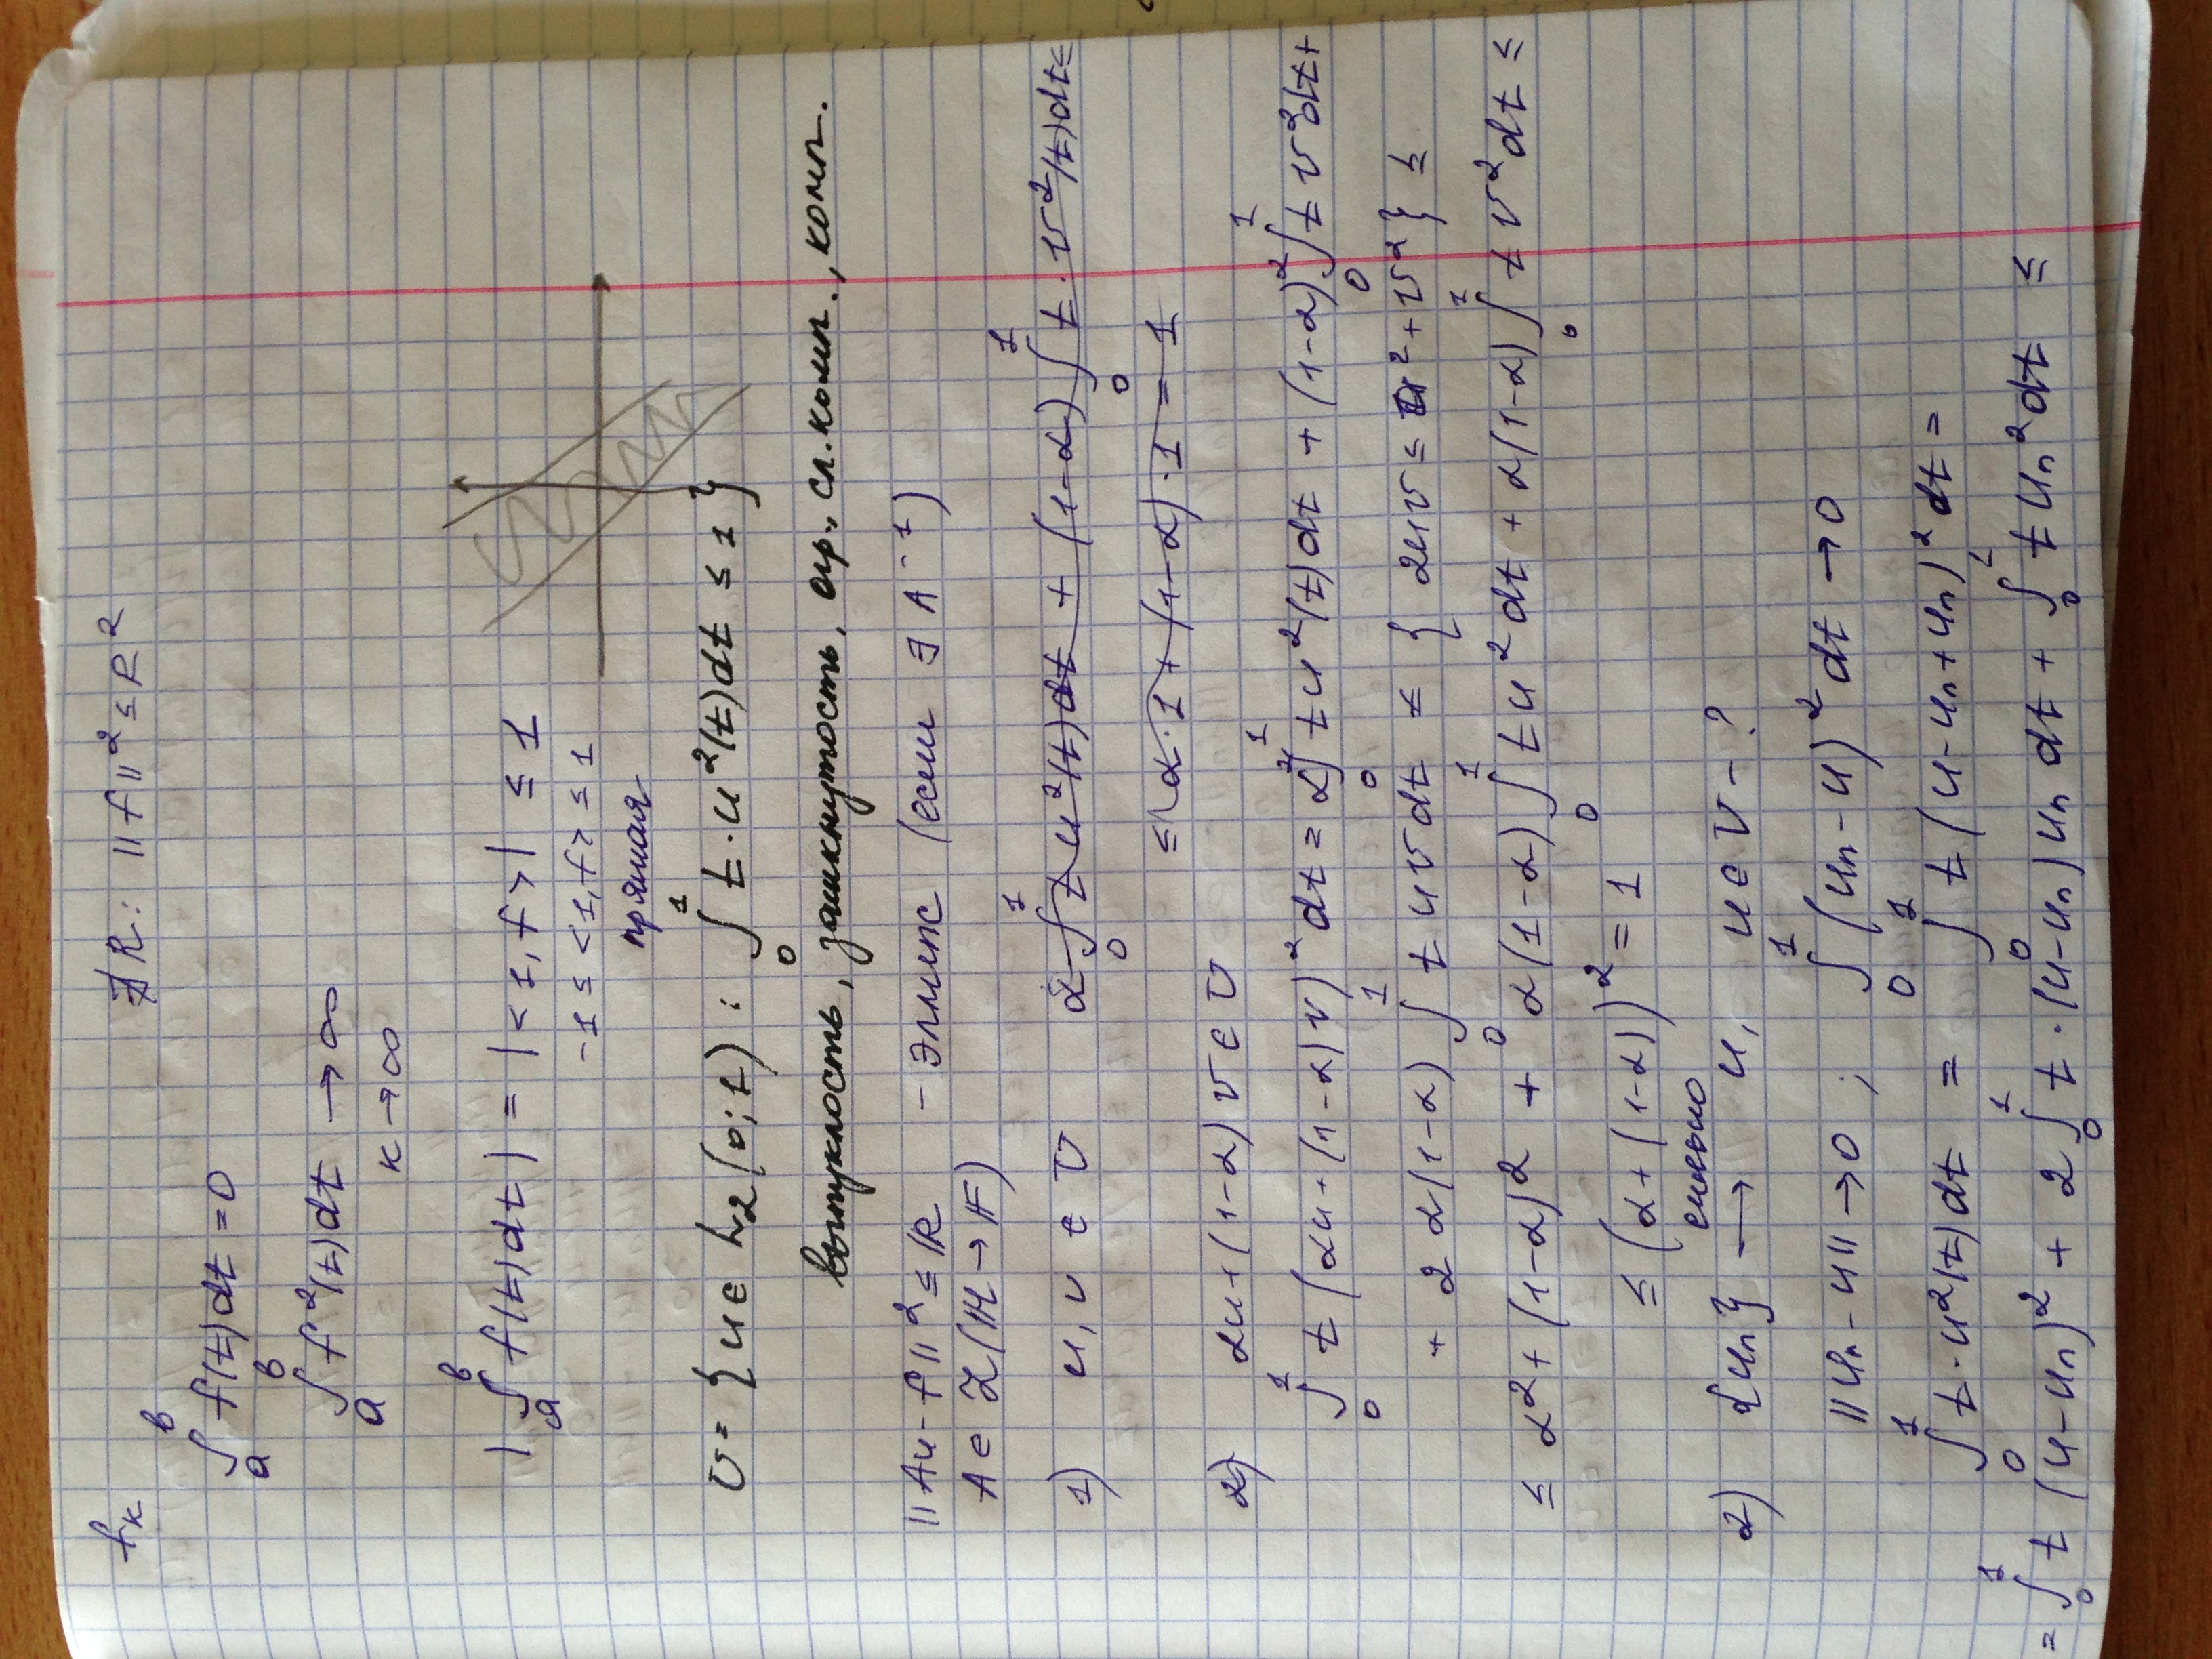 f_k ∄ R: ||f||² ≤ R²
∫_a^b f(t)dt = 0
∫_a^b f²(t)dt → ∞
k → ∞
|∫_a^b f(t)dt| = |<1, f>| ≤ 1
-1 ≤ <1, f> ≤ 1
прямая
U = { u ∈ L₂(0; 1) : ∫_0^1 t · u²(t)dt ≤ 1 }
выпуклость, замкнутость, огр., сл. комп., комп.
||Au - f||² ≤ R - эллипс (если ∃ A⁻¹)
A ∈ L(H → F)
1) u, v ∈ U α ∫_0^1 t u²(t)dt + (1-α) ∫_0^1 t · v²(t)dt ≤
≤ α·1 + (1-α)·1 = 1
2) αu + (1-α)v ∈ U
∫_0^1 t (αu + (1-α)v)² dt = α² ∫_0^1 t u²(t)dt + (1-α)² ∫_0^1 t v² dt +
+ 2α(1-α) ∫_0^1 t uv dt ≤ { 2uv ≤ u² + v² } ≤
≤ α² + (1-α)² + α(1-α) ∫_0^1 t u² dt + α(1-α) ∫_0^1 t v² dt ≤
≤ (α + (1-α))² = 1
2) {u_n} → сильно u, u ∈ U - ?
||u_n - u|| → 0 ; ∫_0^1 (u_n - u)² dt → 0
∫_0^1 t · u²(t)dt = ∫_0^1 t (u - u_n + u_n)² dt =
= ∫_0^1 t (u - u_n)² + 2 ∫_0^1 t · (u - u_n) u_n dt + ∫_0^1 t u_n² dt ≤